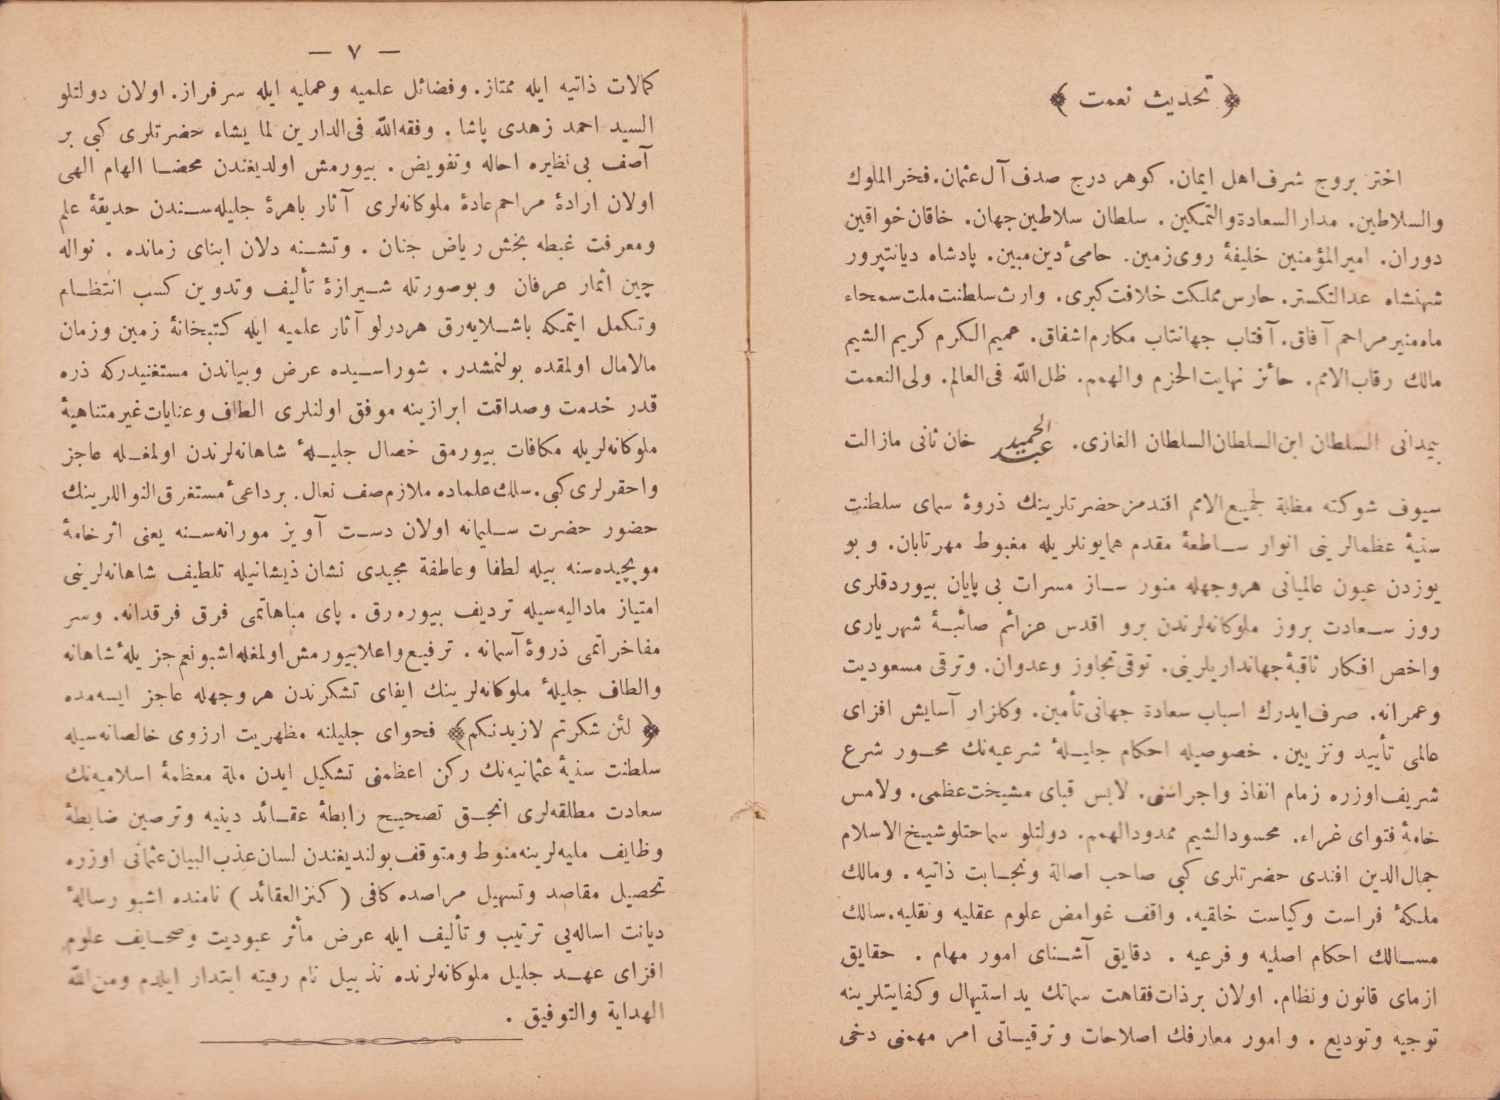 ﴿ تحديث نعمت ﴾
اختر بروج شرف اهل ايمان. كوهر درج صدف آل عثمان. فخر الملوك
والسلاطين. مدار السعادة والتمكين. سلطان سلاطين جهان. خاقان خواقين
دوران. امير المؤمنين خليفۀ روى زمين. حامىٔ دين مبين. پادشاه ديانتپرور
شهنشاه عدالتكستر. حارس مملكت خلافت كبرى. وارث سلطنت ملت سمحاء
ماه منير مراحم آفاق. آفتاب جهانتاب مكارم اشفاق. عميم الكرم كريم الشيم
مالك رقاب الامم. حائز نهايت الحزم والهمم. ظل الله فى العالم. ولى النعمت
بيمدانى السلطان ابن السلطان السلطان الغازى. عبد الحميد خان ثانى مازالت
سيوف شوكته مظلة لجميع الامم افندمز حضرتلرينك ذروۀ سماى سلطنت
سنيۀ عظمالرينى انوار ساطعۀ مقدم همايونلريله مغبوط مهرتابان. و بو
يوزدن عيون عالميانى هر وجهله منور ساز مسرات بى پايان بيوردقلرى
روز سعادت بروز ملوكانه‌لرندن برو اقدس عزائم صائبۀ شهريارى
واخص افكار ثاقبۀ جهانداريلرينى. توقى تجاوز وعدوان. وترقى مسعوديت
وعمرانه. صرف ايدرك اسباب سعادة جهانى تأمين. وكلزار آسايش افزاى
عالمى تأييد وتزيين. خصوصيله احكام جليلۀ شرعيه‌نك محور شرع
شريف اوزره زمام انفاذ واجراسنى. لابس قباى مشيخت عظمى. ولامس
خامۀ فتواى غراء. محسود الشيم ممدود الهمم. دولتلو سماحتلو شيخ الاسلام
جمال الدين افندى حضرتلرى كبى صاحب اصالة ونجابت ذاتيه. ومالك
ملكۀ فراست وكياست خلقيه. واقف غوامض علوم عقليه ونقليه. سالك
مسالك احكام اصليه و فرعيه. دقايق آشناى امور مهام. حقايق
ازماى قانون ونظام. اولان بر ذات فقاهت سماتك يد استيهال وكفايتلرينه
توجيه وتوديع. وامور معارفك اصلاحات و ترقياتى امر مهمنى دخى
— ٧ —
كمالات ذاتيه ايله ممتاز. وفضائل علميه وعمليه ايله سرفراز. اولان دولتلو
السيد احمد زهدى پاشا. وفقه الله فى الدارين لما يشاء حضرتلرى كبى بر
آصف بى نظيره احاله وتفويض. بيورمش اولديغندن محضا الهام الهى
اولان ارادۀ مراحم عادۀ ملوكانه‌لرى آثار باهرۀ جليله‌سندن حديقۀ علم
ومعرفت غبطه بخش رياض جنان. وتشنه دلان ابناى زمانده. نواله
چين اثمار عرفان و بوصورتله شيرازۀ تأليف وتدوين كسب انتظام
وتكمل ايتمكه باشلايه‌رق هر درلو آثار علميه ايله كتبخانۀ زمين وزمان
مالامال اولمقده بولنمشدر. شوراسيده عرض وبياندن مستغنيدركه ذره
قدر خدمت وصداقت ابرازينه موفق اولنلرى الطاف وعنايات غير متناهيۀ
ملوكانه‌لريله مكافات بيورمق خصال جليلۀ شاهانه‌لرندن اولمغله عاجز
واحقرلرى كبى. سلك علماده ملازم صف نعال. بر داعىٔ مستغرق النواللرينك
حضور حضرت سليمانه اولان دست آويز مورانه‌سنه يعنى اثر خامۀ
موپچيده‌سنه بيله لطفا وعاطفة مجيدى نشان ذيشانيله تلطيف شاهانه‌لرينى
امتياز ماداليه‌سيله ترديف بيوره‌رق. پاى مباهاتمى فرق فرقدانه. وسر
مفاخراتمى ذروۀ آسمانه. ترفيع واعلا بيورمش اولمغله اشبو نعم جزيلۀ شاهانه
والطاف جليلۀ ملوكانه‌لرينك ايفاى تشكرندن هر وجهله عاجز ايسه‌مده
﴿ لئن شكرتم لازيدنكم ﴾ فحواى جليلنه مظهريت ارزوى خالصانه‌سيله
سلطنت سنيۀ عثمانيه‌نك ركن اعظمنى تشكيل ايدن ملة معظمۀ اسلاميه‌نك
سعادت مطلقه‌لرى انجق تصحيح رابطۀ عقائد دينيه وترصين ضابطۀ
وظايف مليه‌لرينه منوط ومتوقف بولنديغندن لسان عذب البيان عثمانى اوزره
تحصيل مقاصد وتسهيل مراصده كافى ( كنز العقائد ) نامنده اشبو رسالۀ
ديانت اساله‌يى ترتيب و تأليف ايله عرض مأثر عبوديت وصحايف علوم
افزاى عهد جليل ملوكانه‌لرنده تذييل نام رقيته ابتدار ايلدم ومن الله
الهداية والتوفيق.